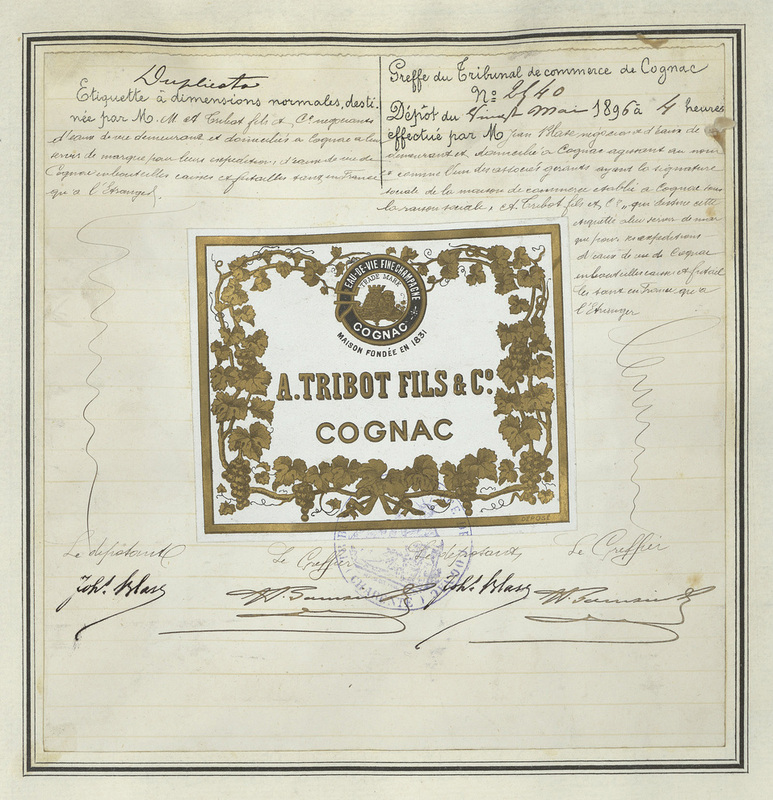 Duplicata
Etiquette à dimensions normales, desti-
née par M. M et Tribot fils & Cie négociants
d'eaux de vie demeurant et domiciliés à Cognac à leur
servir de marque pour leurs expéditions d'eaux de vie de
Cognac en bouteilles caisses et futailles tant en France
qu'à l'Etranger.
Greffe du Tribunal de commerce de Cognac
No 2540
Dépôt du Vingt Mai 1896 à 4 heures
effectué par M Jean Blase négociant d'eaux de vie
demeurant et domicilié à Cognac agissant au nom
et comme l'un des associés gérants ayant la signature
sociale de la maison de commerce établie à Cognac sous
la raison sociale, A. Tribot fils et Cie, qui destine cette
étiquette à leur servir de mar
que pour ses expéditions
d'eaux de vie de Cognac
en bouteilles caisses et futail
les tant en France qu'à
l'Etranger
EAU-DE-VIE FINE CHAMPAGNE
TRADE MARK
COGNAC
MAISON FONDÉE EN 1831
A. TRIBOT FILS & Co.
COGNAC
DEROSE
Le dépôtant Le Greffier Le dépôtant Le Greffier